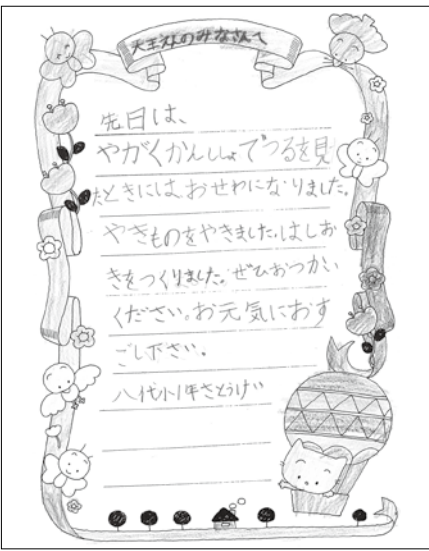 天王えんのみなさんへ
先日は、
やがくかんしょでつるを見
たときには、おせわになりました。
やきものをやきました。はしお
きをつくりました。ぜひおつかい
ください。お元気におす
ごし下さい。
八代小1年さとう